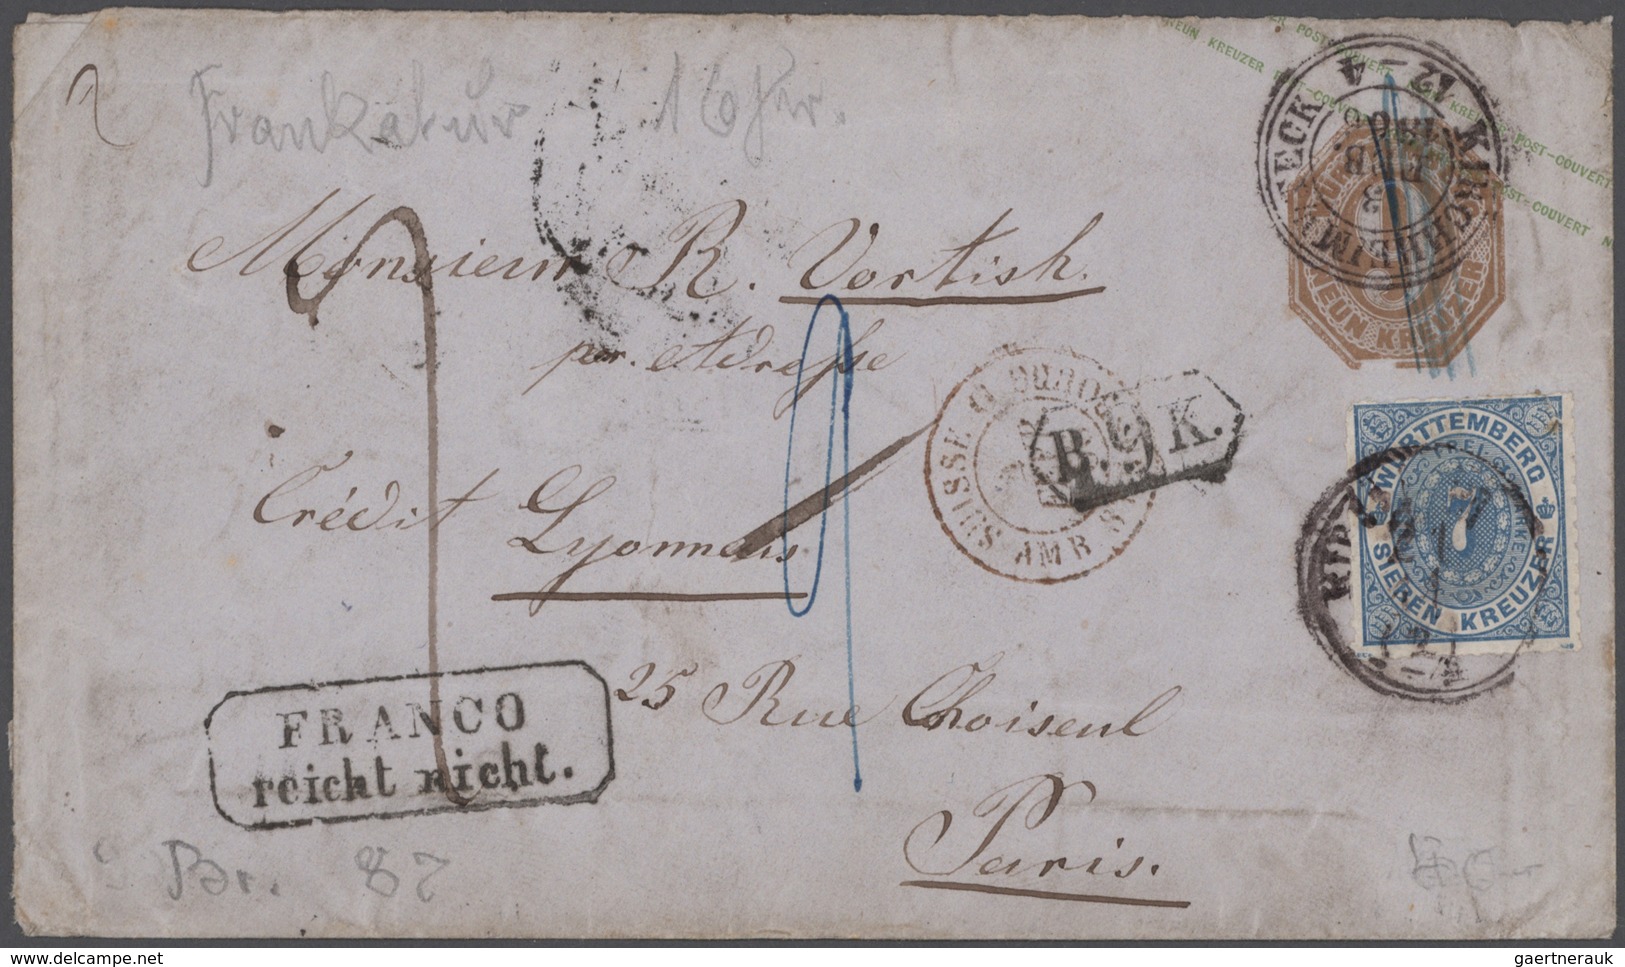 Frankatur 16 Kr.
NEUN KREUZER POST-COUVERT
KIRCHHEIM N/TECK
12 - 4
3
FEB
NEUN KREUZER
Monsieur R. Vortish.
pr. Adresse
Crédit Lyonnais
25 Rue Choiseul
Paris.
SUISSE
AMB. S
B. K.
WÜRTTEMBERG
7
SIEBEN KREUZER
FRANCO
reicht nicht.
Br. 87
www.philasearch.com
gaertnerauk